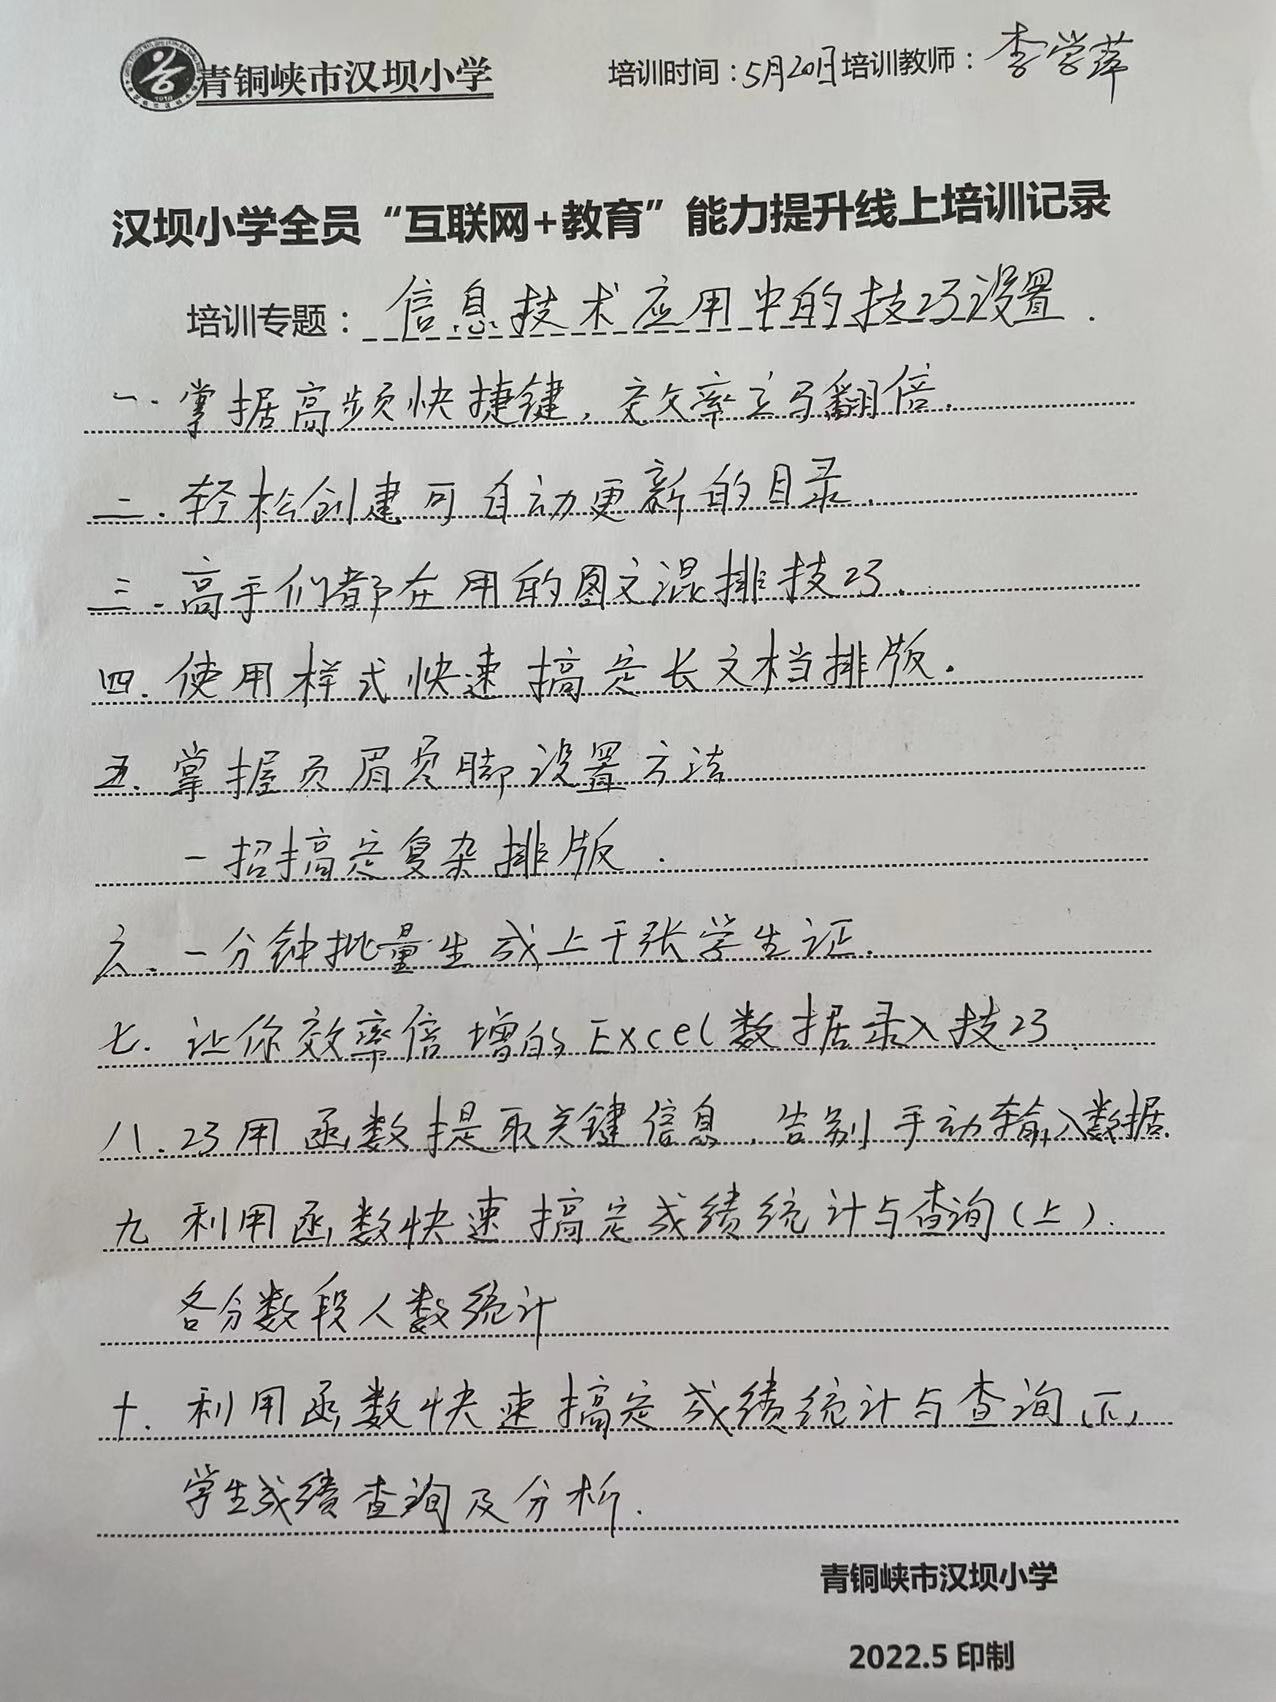 青铜峡市汉坝小学 培训时间:5月20日 培训教师:李学萍
汉坝小学全员“互联网+教育”能力提升线上培训记录
培训专题:信息技术应用中的技巧设置.
一.掌据高频快捷键,效率立马翻倍.
二.轻松创建可自动更新的目录.
三.高手们都在用的图文混排技巧.
四.使用样式快速搞定长文档排版.
五.掌握页眉页脚设置方法
一招搞定复杂排版.
六.一分钟批量生成上千张学生证.
七.让你效率倍增的Excel数据录入技巧
八.巧用函数提取关键信息,告别手动输入数据.
九 利用函数快速搞定成绩统计与查询(上).
各分数段人数统计
十.利用函数快速搞定成绩统计与查询(下)
学生成绩查询及分析.
青铜峡市汉坝小学
2022.5 印制